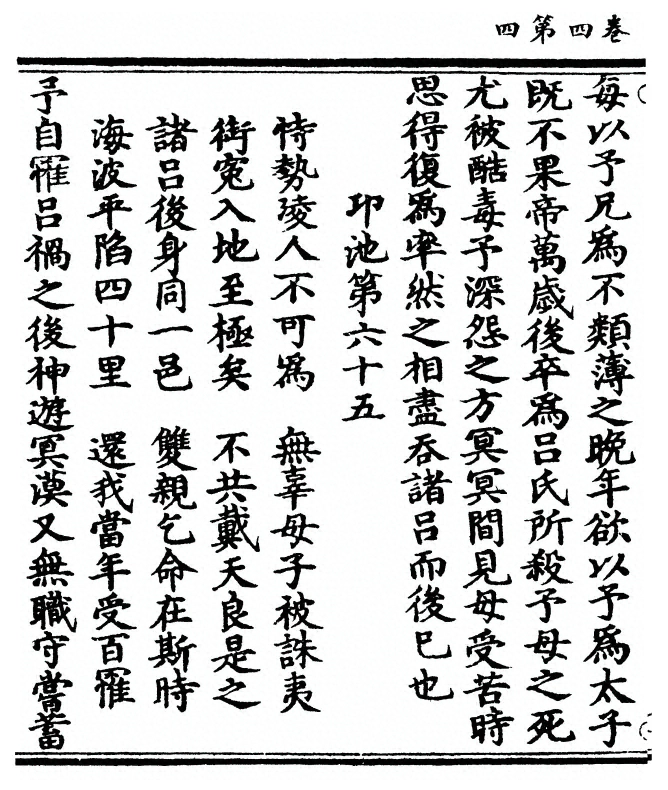 卷四第四
每以予兄爲不類薄之晚年欲以予爲太子
既不果帝萬歲後卒爲呂氏所殺予母之死
尤被酷毒予深怨之方冥冥間見母受苦時
思得復爲率然之相盡吞諸呂而後已也
卭池第六十五
恃勢凌人不可爲　無辜母子被誅夷
銜寃入地至極矣　不共戴天良是之
諸呂後身同一邑　雙親乞命在斯時
海波平陷四十里　還我當年受百罹
予自罹呂禍之後神遊冥漠又無職守嘗蓄